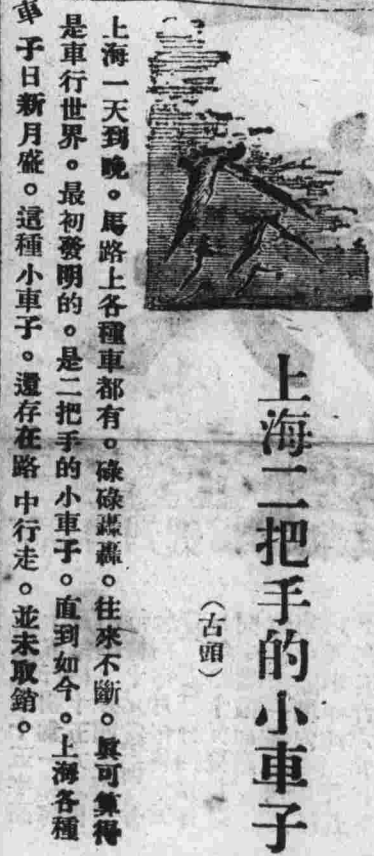 上海二把手的小車子
(古頭)
上海一天到晚。馬路上各種車都有。碌碌轟轟。往來不斷。眞可算得
是車行世界。最初發明的。是二把手的小車子。直到如今。上海各種
車子日新月盛。這種小車子。還存在路中行走。並未取銷。